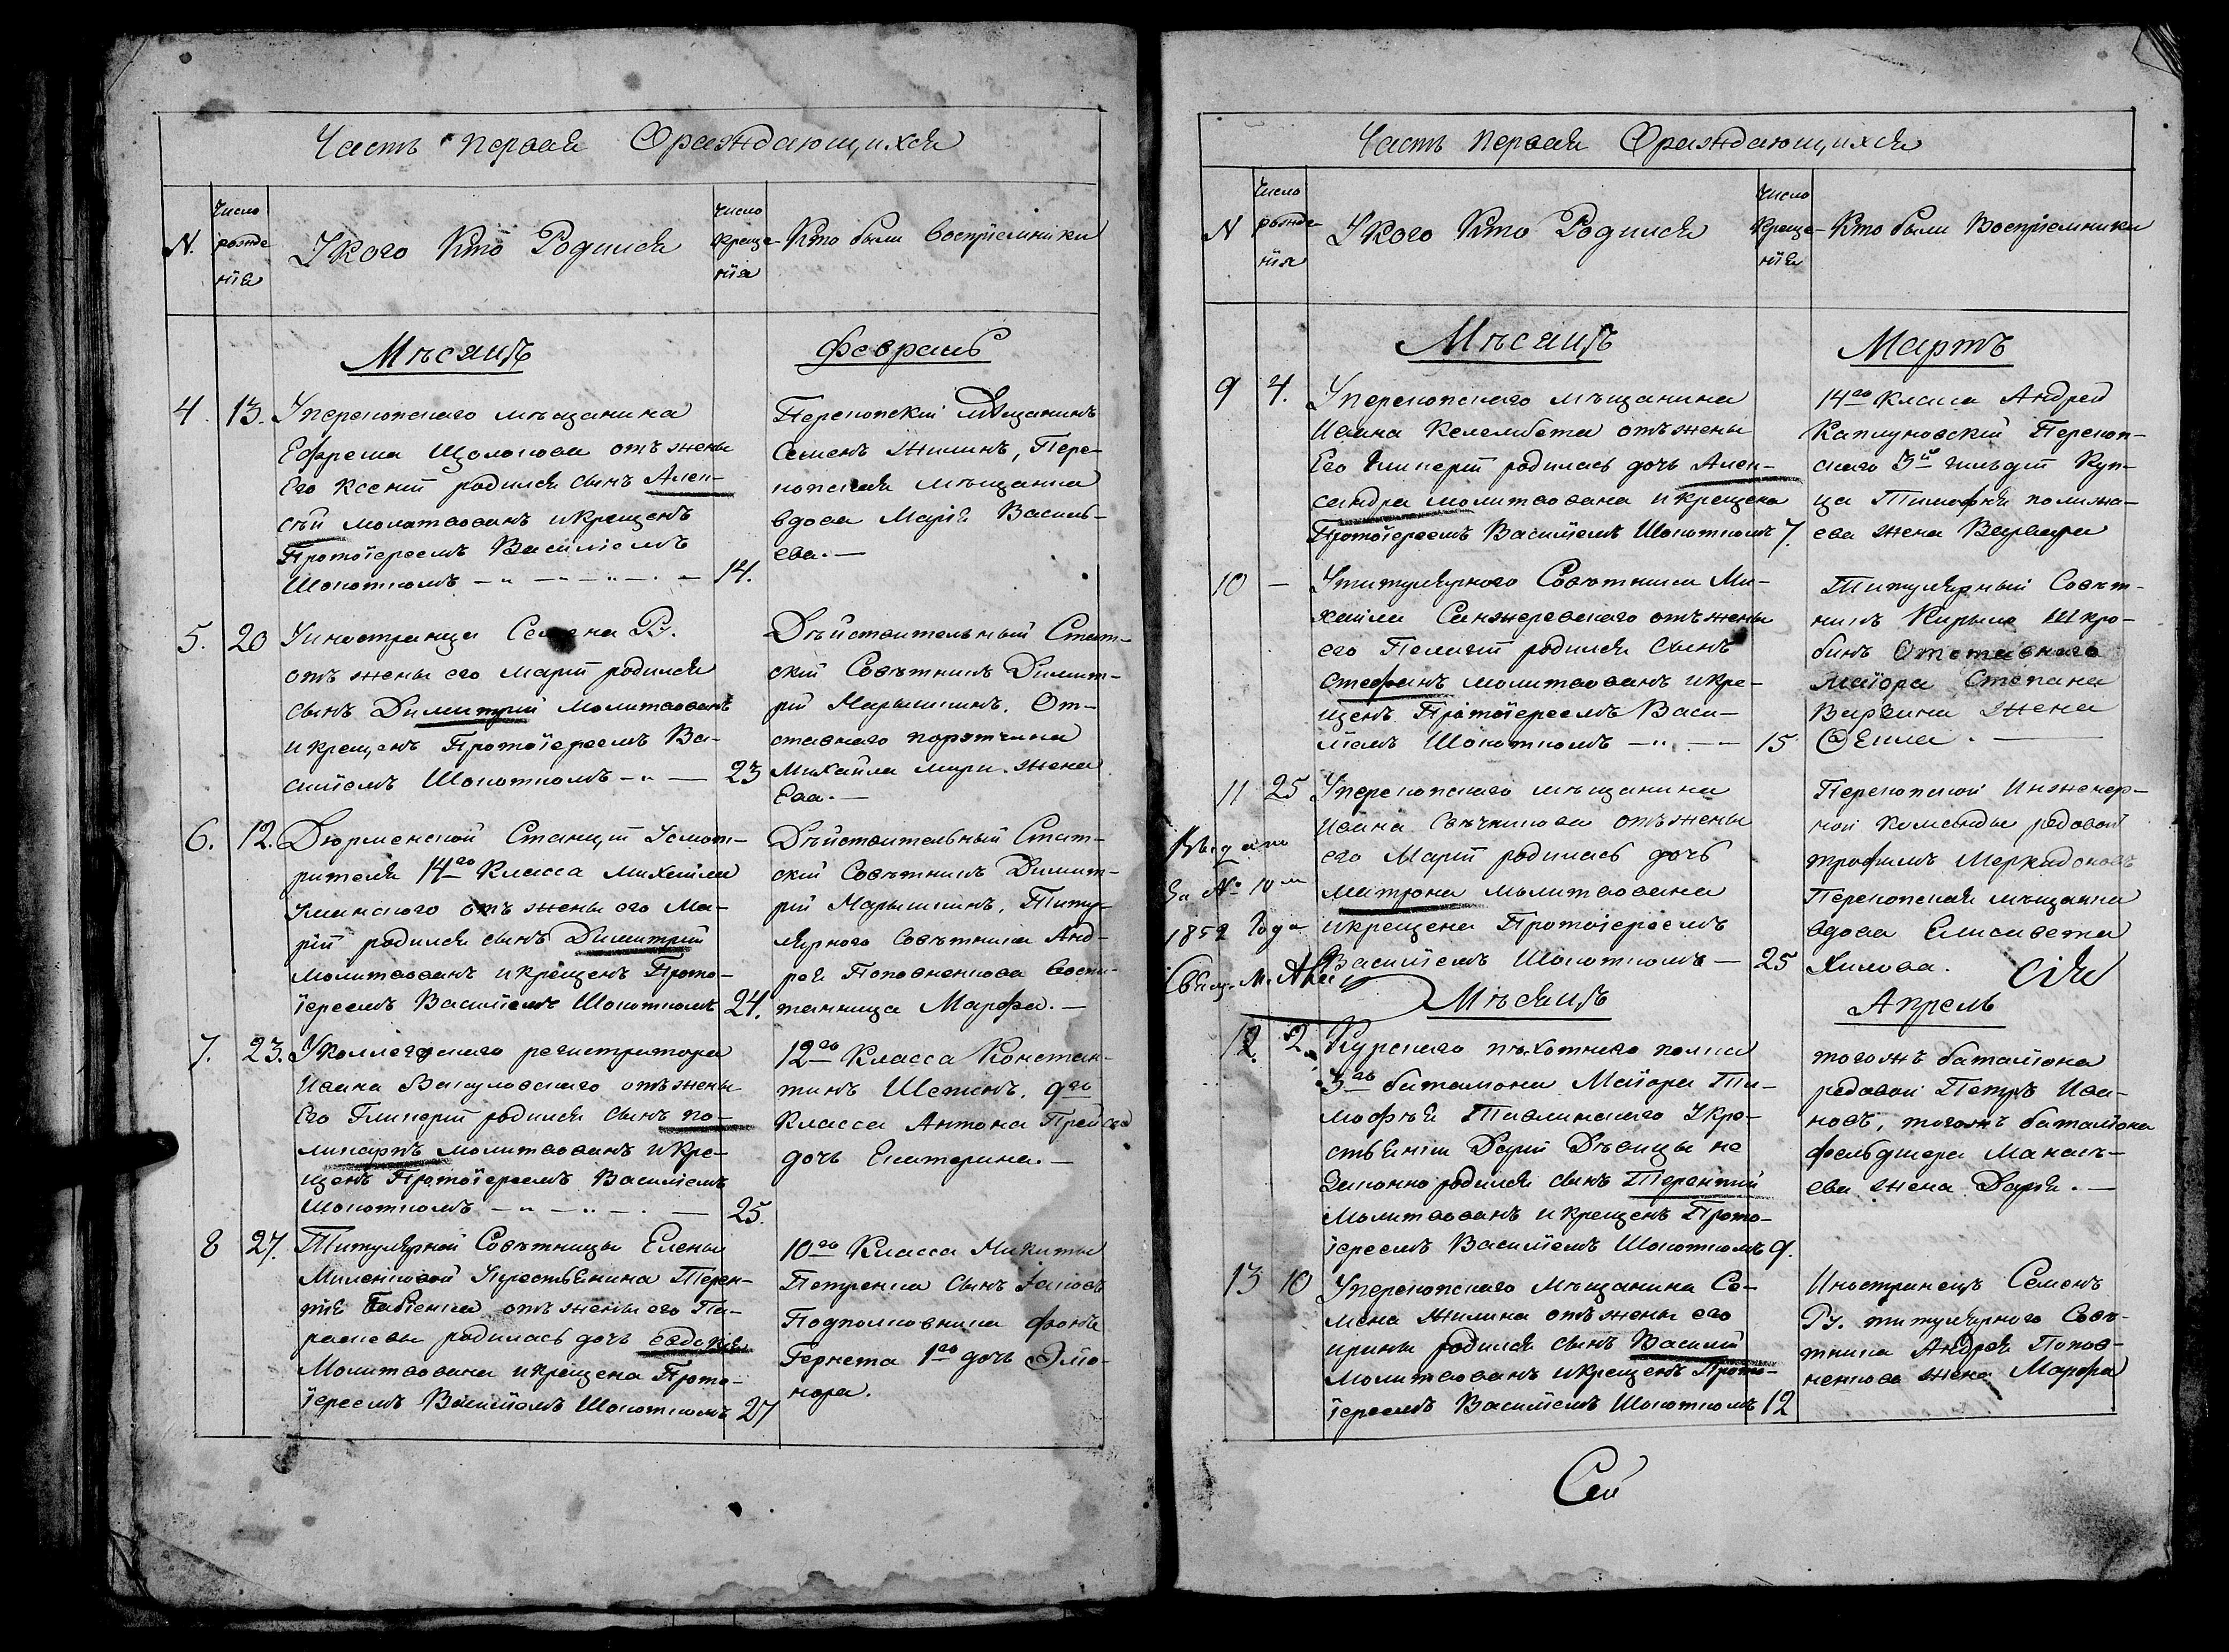 Часть первая Ораждающихся
N.
Число рожде нія
У кого кто Родился
Число креще- нія
Кто были воспріемники
Мѣсяцъ
февраль
4. 13. У перекопскаго мѣщанина
Ефрема Щолокова отъ жены
Его Ксеніи родился сынъ Алек-
сѣй молитвованъ и крещенъ
Протоіереемъ Василіемъ
Шокоткомъ 14.
Перекопскій мѣщанинъ
Семенъ Жилинъ, Пере-
копская мѣщанка
вдова Марія Василь-
ева.
5. 20 У иностранца Семена Рз.
отъ жены его Маріи родился
сынъ Димитрій молитвованъ
и крещенъ Протоіереемъ Ва-
силіемъ Шокоткомъ 23
Дѣйствительный Стат-
скій Совѣтникъ Димит-
рій Нарышкинъ. От-
ставнаго порутчика
Михайла жена
Ева.
6. 12. Дюрменской Станціи Усмот-
рителя 14го Класса Михайла
Уманского отъ жены его Ма-
ріи родился сынъ Димитрій
молитвованъ и крещенъ Прото-
іереемъ Василіемъ Шокоткомъ 24.
Дѣйствительный Стат-
скій Совѣтникъ Димит-
рій Нарышкинъ, Титу-
лярного Совѣтника Анд-
рея воспи-
танница Марфа.
7. 23. У коллегскаго регистратора
Ивана Вакуловскаго отъ жены
Его Гликеріи родился сынъ по-
ликарпъ молитвованъ и кре-
щенъ Протоіереемъ Василіемъ
Шокоткомъ 25.
12го Класса Констан-
тинъ Щетинъ. 9го
Класса Антона
дочь Екатерина.
8 27. Титулярной Совѣтницы Елены
Миленковой Терен-
тія Бабенка отъ жены его Па-
раскевы родилась дочь Евдокія
Молитвована и крещена Прото-
іереемъ Василіемъ Шокоткомъ 27
10го Класса Никиты
Петренка сынъ Яковъ
Подполковника фонъ
Гернета 1го дочь Элео-
нора.
Часть первая Ораждающихся
N
Число рожде- нія
У кого Кто Родился
Число Креще- нія
Кто были Воспріемники
Мѣсяцъ
Мартъ
9 4. У перекопскаго мѣщанина
Ивана Келембета отъ жены
Его Гликеріи родилась дочь Алек-
сандра молитвована и крещена
Протоіереемъ Василіемъ Шокоткомъ 7.
14го класса Андрей
Каплуновскій Перекоп-
скаго 3й гильдіи Куп-
ца Тимофея полиха-
ева жена Варвара
10 — У титулярного Совѣтника Ми-
хайла Санжеревскаго отъ жены
его Пелагіи родился Сынъ
Стефанъ молитвованъ и кре-
щенъ Протоіереемъ Васи-
ліемъ Шокоткомъ 15
Титулярный Совѣт-
никъ Кирыло Шкро-
бинъ Отставнаго
Маіора Степана
жена
11 25 У перекопскаго мѣщанина
Ивана Свѣчникова отъ жены
его Маріи родилась дочь
матрона молитвована
и крещена Протоіереемъ
Василіемъ Шокоткомъ — 25
Перекопской Инженер-
ной Команды рядовой
трофимъ
Перекопская мѣщанка
вдова Елисавета
Хилова.
Сія
Выдано
За № 10м
1852 Года
Мѣсяцъ
Апрель
12. 2. Курскаго пѣхотного полка
3го баталіона Маіора Ти-
мофѣя Тавлинскаго У кре-
стьянки Даріи Дѣвицы не
Законно родился сынъ Терентий
Молитвованъ и крещенъ Прото-
іереемъ Василіемъ Шокоткомъ 9.
тогожъ баталіона
рядовой Петръ Ива-
новъ, тогожъ баталіона
фельдшера Манакъ-
ева жена Дарія.
13 10 У перекопскаго Мѣщанина Се-
мена Жилина отъ жены его
ирины родился сынъ Василий
молитвованъ и крещенъ Прото-
іереемъ Василіемъ Шокоткомъ 12
Иностранецъ Семенъ
Рз. титулярного Совѣ-
тника Андрея
жена Марфа
Сей